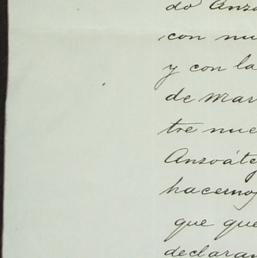 do Anzo
con nu
y con la
de Mar
tre nue
Anzoáte
hacemos
que que
declaran